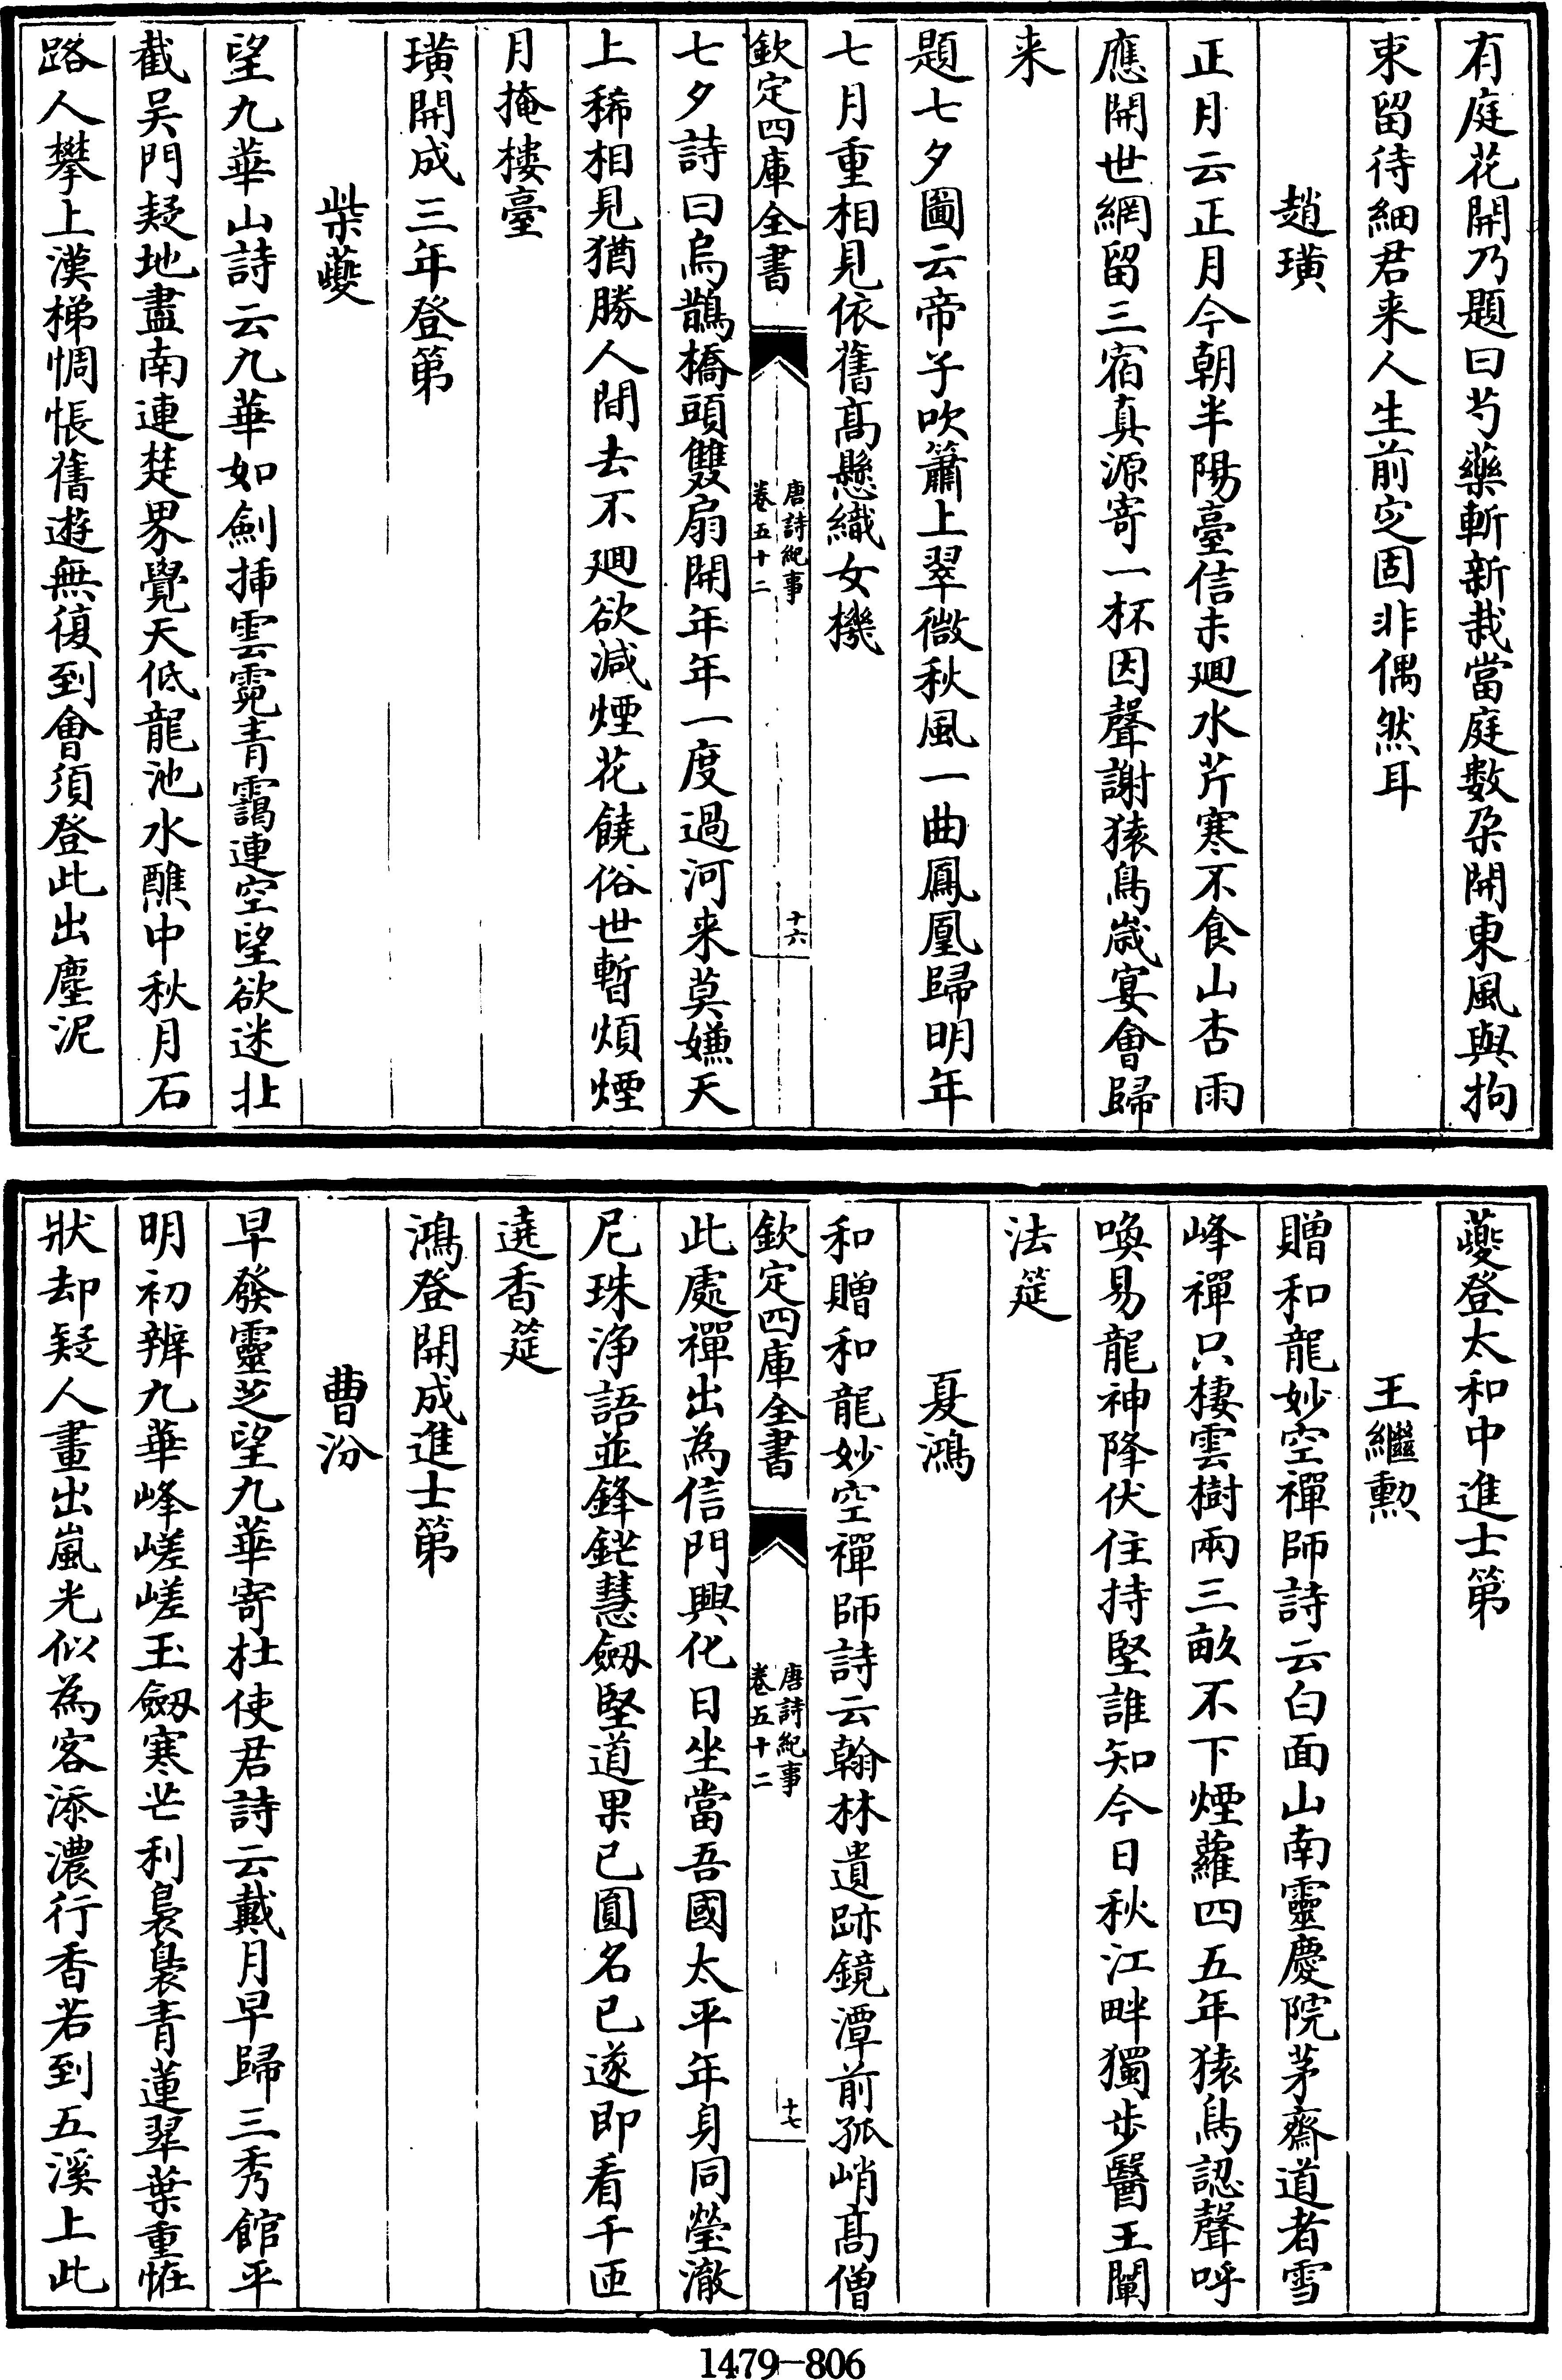 有庭花開乃題曰芍藥斬新栽當庭數朶開東風與拘
束留待細君来人生前定固非偶然耳
趙璜
正月云正月今朝半陽臺信未廻水芹寒不食山杏雨
應開世網留三宿真源寄一杯因聲謝猿鳥歳宴會歸
来
題七夕圖云帝子吹簫上翠微秋風一曲鳳凰歸明年
七月重相見依舊髙懸織女機
欽定四庫全書
唐詩紀事
卷五十二
十六
七夕詩曰烏鵲橋頭雙扇開年年一度過河来莫嫌天
上稀相見猶勝人間去不廻欲減煙花饒俗世暫煩煙
月掩樓臺
璜開成三年登第
柴夔
望九華山詩云九華如劍揷雲霓青靄連空望欲迷北
截吳門疑地盡南連楚界覺天低龍池水醮中秋月石
路人攀上漢梯惆悵舊遊無復到會須登此出塵泥
夔登太和中進士第
王繼勲
贈和龍妙空禪師詩云白面山南靈慶院茅齋道者雪
峰禪只棲雲樹兩三畝不下煙蘿四五年猿鳥認聲呼
喚易龍神降伏住持堅誰知今日秋江畔獨步醫王闡
法筵
夏鴻
和贈和龍妙空禪師詩云翰林遺跡鏡潭前孤峭髙僧
欽定四庫全書
唐詩紀事
卷五十二
十七
此處禪出為信門興化日坐當吾國太平年身同瑩澈
尼珠浄語並鋒鋩慧劒堅道果已圓名已遂即看千匝
遶香筵
鴻登開成進士第
曹汾
早發靈芝望九華寄杜使君詩云戴月早歸三秀館平
明初辨九華峰嵯嵯玉劒寒芒利裊裊青蓮翠葉重恠
狀却疑人畫出嵐光似為客添濃行香若到五溪上此
1479-806